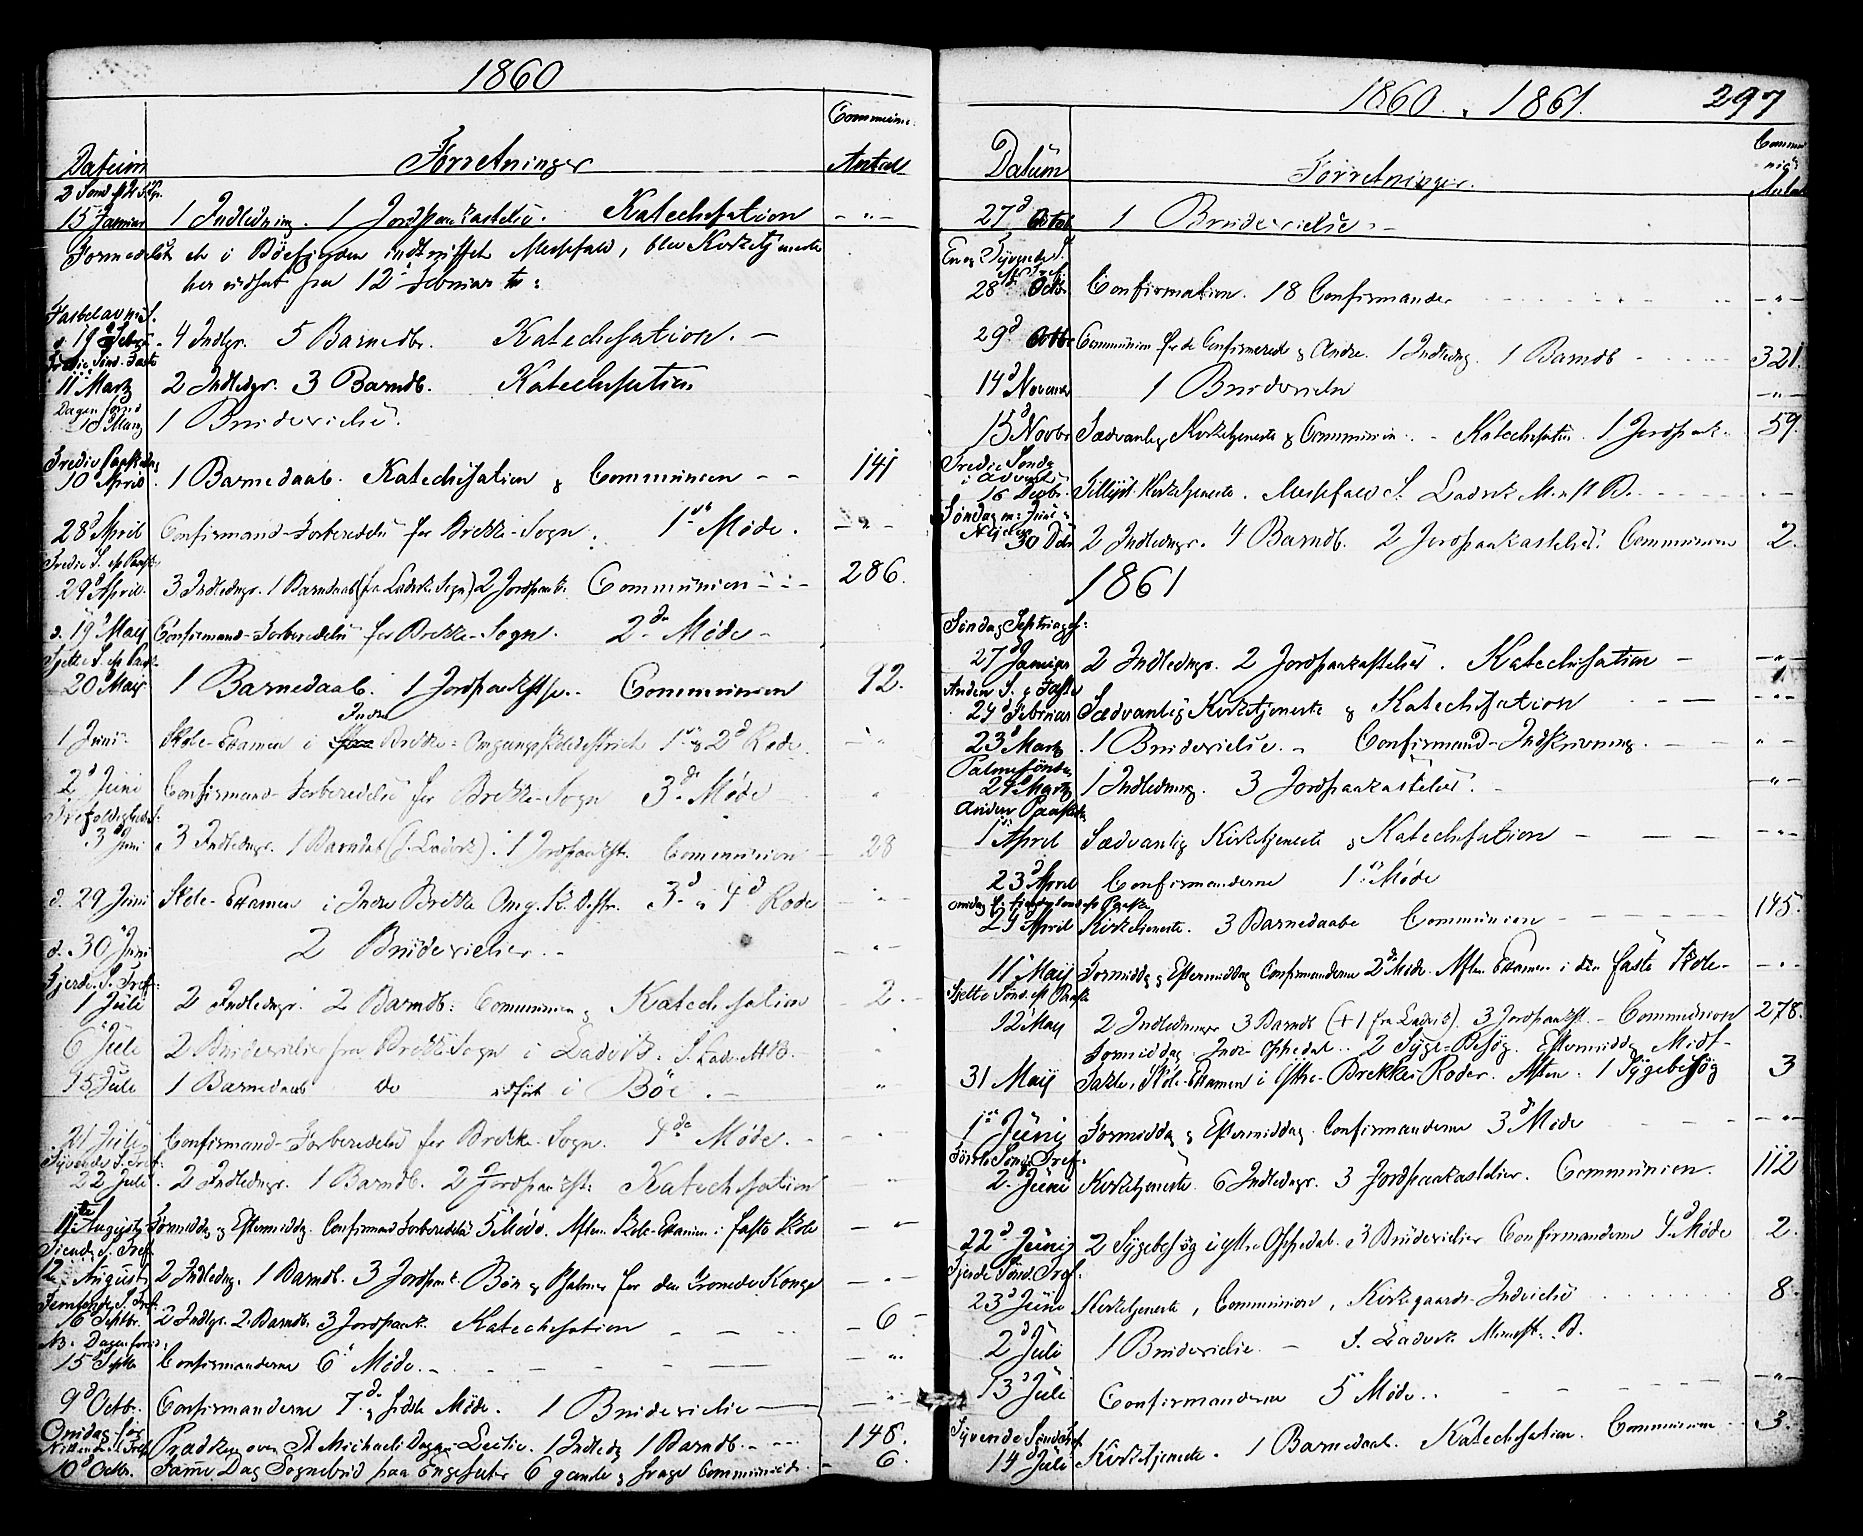 1860
Datum Forretninger Commun. Antal
2 Sond.
15 Januar 1 Indledning. 1 Jordpaakastelse. Katechisation - " -
Formedelst de i Böefjorden indtruffet blev Kirketjeneste
her udsat fra 12 Februar til:
Fastelavns S.
d. 19 Febr. 4 Indlgr. 5 Barnedb. Katechisation. -
Tredie Sönd. Faste
11 Martz 2 Indledgr. 3 Barndb. Katechisation
Dagen forud
10 Martz 1 Brudevielse.
Tredie Paaskedag
10 April 1 Barnedaab. Katechisation & Communion - - 141
28 April Confirmand-Forberedelse for Brekke-Sogn. 1ste Möde. - " -
Tredie S. ef. Paaske
29 April. 3 Indledngr. 1 Barnedaab (fra Ladvik Sogn) 2 Jordpaak. Communion - - 286.
d. 19 Maij Confirmand-Forberedelse for Brekke-Sogn. 2de Möde -
Sjette S. ef. Paaske
20 Maij 1 Barnedaab. 1 Jordpaakstse. Communion 92.
Indre
1 Juni Skole-Examen i Brekke Omgangsskoledistrict 1ste & 2d Rode. - " -
2 Juni Confirmand Forberedelse for Brekke-Sogn 3de Möde "
Trefoldigheds S.
3 Juni 3 Indledngr. 1 Barndab (f. Ladvik). 1 Jordpaakst. Communion 28
d. 29 Juni Skole-Examen i Indre Brekke Omg. Sk. Distr. 3d & 4d Rode - " -
d. 30 Juni 2 Brudevielser. - " -
Fjerde S. Tref.
1 Juli 2 Indledngr. 2 Barndb. Communion & Katechisation - 2. -
6 Juli 2 Brudevielser fra Brekke Sogn i Ladvik. "
15 Juli 1 Barnedaab do udfört i Böe. - "
21 Juli Confirmand-Forberedelse for Brekke-Sogn. 4de Möde. - " -
Syvende S. Tref.
22 Juli. 2 Indledngr. 1 Barndb. 2 Jordpaakst. Katechisation - " -
11te Augusti Formiddag & Eftermiddag. Confirmand Forberedelse 5 Möde. Aften Skole-Examen i faste Skole - " -
Tiende S. Tref.
12 August 2 Indledng. 1 Barndb. 3 Jordpaak. Bön & Psalmer for den kronede Konge - " -
Femtende S. Tref.
16 Septbr. 2 Indlgr. 2 Barndb. 3 Jordpaak. Katechisation - 6 -
NB. Dagen forud:
15 Septbr Confirmanderne 6 Möde. - " -
9d Octbr. Confirmanderne 7de & sidste Möde. 1 Brudevielse - " -
Onsdag for
Nittende S. Tref. Prædiken over St Michaeli Dags-Lectie. 1 Indledng 1 Barndb. - 148.
10d Octbr. Samme Dag Sognebud paa Engesæter 6 gamle & svage Communicerede - 6.
1860. 1861. 297
Datum Forretninger. Communi- Antal
27d Octob 1 Brudevielse. -
En og Tyvende S.
ef. Tref.
28de Octbr Confirmation. 18 Confirmander - " -
29d Octbr Communion for de Confirmerede & Andre. 1 Indledng. 1 Barndb 321.
14d November 1 Brudevielse - " -
15 Novbr Sædvanlig Kirketjeneste & Communion. - Katechisation. 1 Jordpaak. 59
Tredie Sondag
i Advent
16 Decbr. Kirketjeneste.
Söndag m: Juul &
Nytaar
30 Debr 2 Indledngr. 4 Barndb. 2 Jordpaakastelser. Communion 2.
1861
Söndag Septuages:
27 Januar 2 Indledngr. 2 Jordpaakastelser. Katechisation - - " -
Anden S. i Faste
24 Februar Sædvanlig Kirketjeneste & Katechisation - - " -
23 Martz 1 Brudevielse. - Confirmand-Indskrivning. - " -
Palmesöndag
24 Martz 1 Indledning. 3 Jordpaakastelser. - " -
Anden Paaskedag
1 April Sædvanlig Kirketjeneste & Katechisation - " -
23 April Confirmanderne 1ste Möde
Onsdag f. Paaske
24 April Kirketjeneste. 3 Barnedaabe Communion - 145.
11 Maij Formiddag & Eftermiddag Confirmanderne 2de Möde. Aften Examen i den faste Skole - - " -
Sjette Sönd. ef. Paaske
12 Maij 2 Indledninger 3 Barndb (+ 1 fra Ladvik). 3 Jordpaakst. - Communion 278.
Formiddag Indre Oppedal. 2 Syge-Besög. Eftermiddag
31 Maij Skole-Examen i Yttre-Brekkes Roder. Aften. 1 Sygebesög 3
1ste Junij Formiddag & Eftermiddag. Confirmanderne 3d Möde - " -
Förste Sönd. Tref.
2. Juni Kirketjeneste. 6 Indledngr. 3 Jordpaakastelser. Communion. 112
22d Junij 2 Sygebesög i Yttre Oppedal. 3 Brudevielser Confirmanderne 4d Möde 2.
Fjerde Sönd. Tref.
23d Juni Kirketjeneste, Communion, Kirkegaards-Indvielse 8.
2d Juli 1 Brudevielse -
13 Juli Confirmanderne 5 Möde. - " -
Syvende Sönd. Tref.
14d Juli Kirketjeneste. 1 Barnedaab. Katechisation. Communion 3.